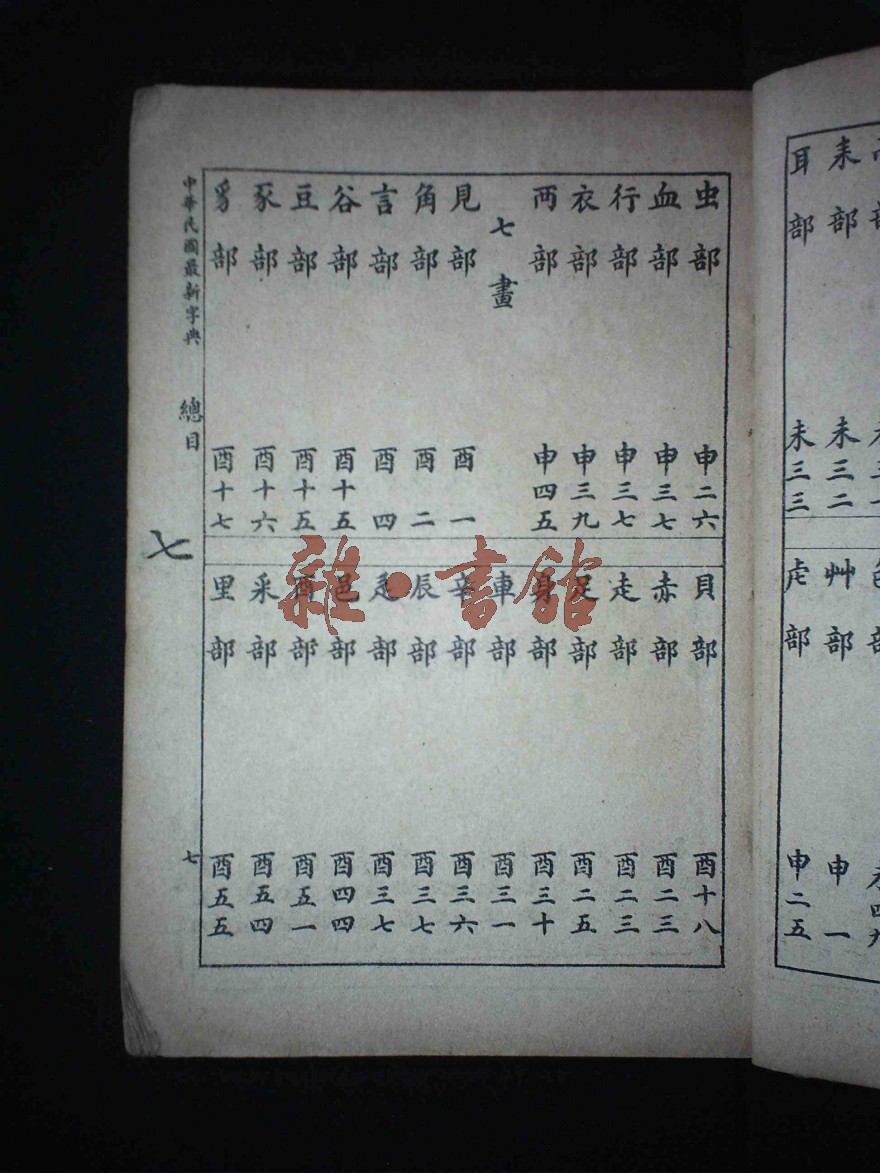 耳部 未三三
耒部 未三二
虍部 申二五
艸部 申一
虫部 申二六
血部 申三七
行部 申三七
衣部 申三九
襾部 申四五
七畫
見部 酉一
角部 酉二
言部 酉四
谷部 酉十五
豆部 酉十五
豕部 酉十六
豸部 酉十七
貝部 酉十八
赤部 酉二三
走部 酉二三
足部 酉二五
身部 酉三十
車部 酉三一
辛部 酉三六
辰部 酉三七
辵部 酉三七
邑部 酉四四
酉部 酉五一
釆部 酉五四
里部 酉五五
中華民國最新字典 總目 七
七
雜·書館